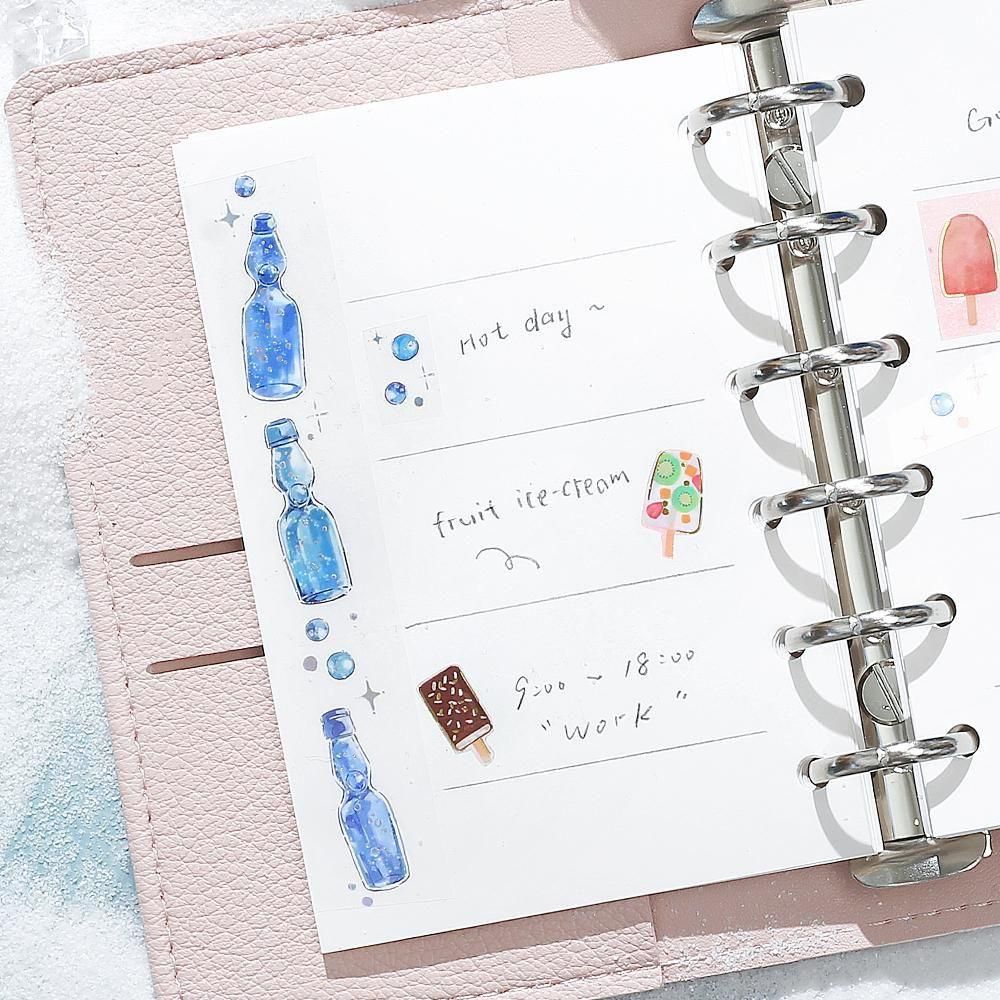 Hot day ~
fruit ice-cream
9:00 ~ 18:00
"Work"